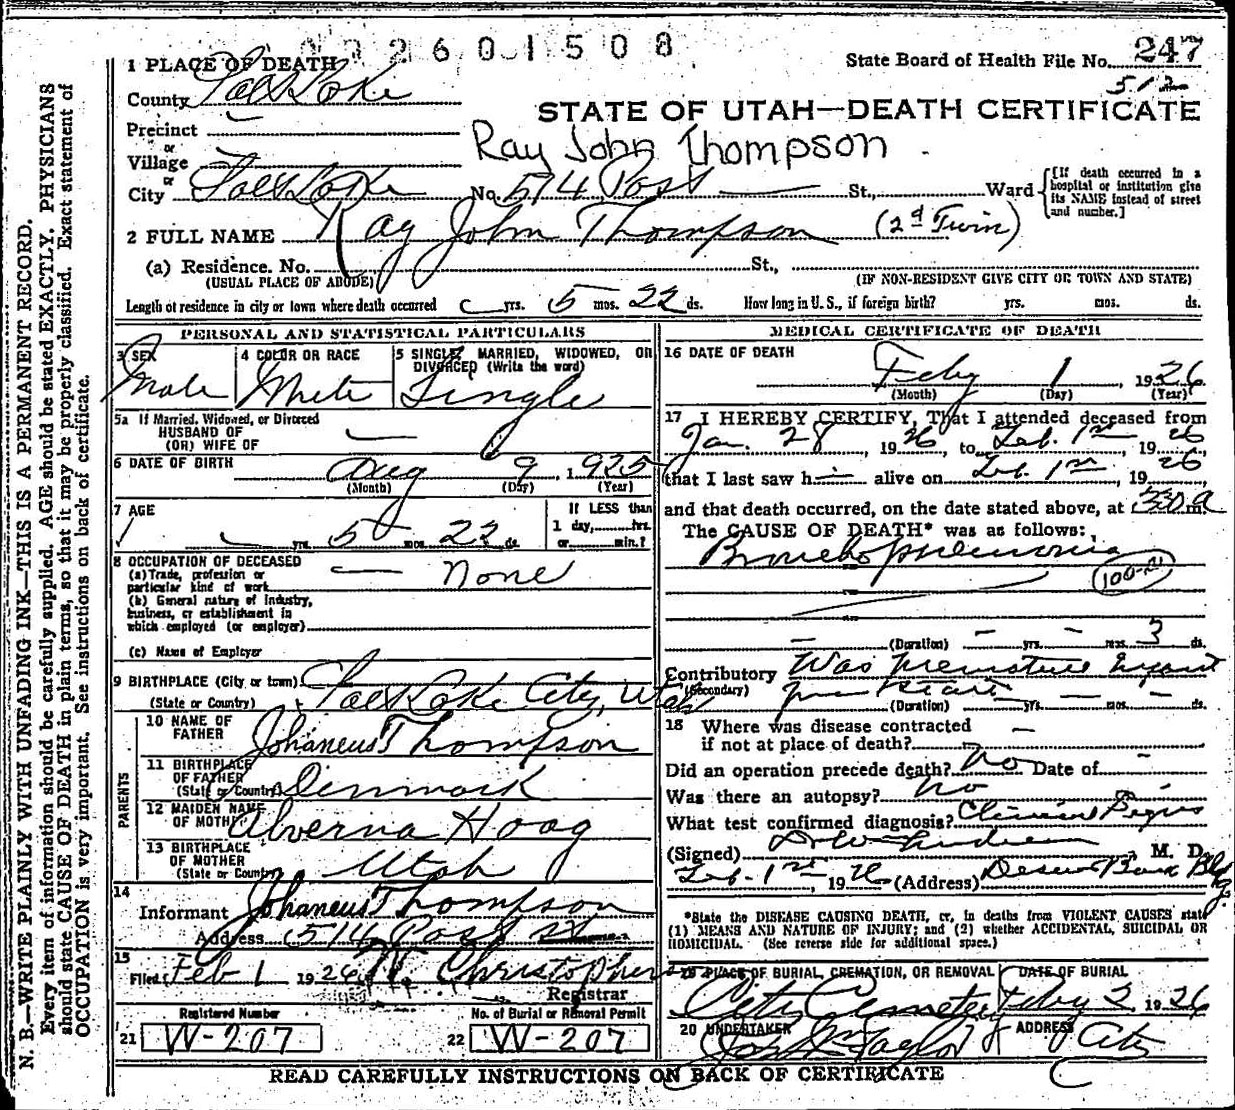 2601508
1 PLACE OF DEATH
State Board of Health File No. 247
512
County Salt Lake
STATE OF UTAH—DEATH CERTIFICATE
Precinct
or
Ray John Thompson
Village
or
City Salt Lake No. 514 Post St., Ward
[If death occurred in a hospital or institution give its NAME instead of street and number.]
2 FULL NAME Ray John Thompson (2d Twin)
(a) Residence. No. St.,
(USUAL PLACE OF ABODE) (IF NON-RESIDENT GIVE CITY OR TOWN AND STATE)
Length of residence in city or town where death occurred yrs. 5 mos. 22 ds. How long in U. S., if foreign birth? yrs. mos. ds.
PERSONAL AND STATISTICAL PARTICULARS
3 SEX Male
4 COLOR OR RACE White
5 SINGLE, MARRIED, WIDOWED, OR DIVORCED (Write the word) Single
5a If Married, Widowed, or Divorced
HUSBAND OF
(OR) WIFE OF
6 DATE OF BIRTH Aug 9 1925
(Month) (Day) (Year)
7 AGE yrs. 5 mos. 22 ds.
If LESS than
1 day, hrs.
or min.?
8 OCCUPATION OF DECEASED
(a) Trade, profession or particular kind of work None
(b) General nature of Industry,
business, or establishment in
which employed (or employer)
(c) Name of Employer
9 BIRTHPLACE (City or town)
(State or Country) Salt Lake City, Utah
PARENTS
10 NAME OF FATHER Johaneus Thompson
11 BIRTHPLACE OF FATHER (State or Country) Denmark
12 MAIDEN NAME OF MOTHER Alverna Hoag
13 BIRTHPLACE OF MOTHER (State or Country) Utah
14
Informant Johaneus Thompson
Address 514 Post St
15
Filed Feb 1 1926 Christopherson
Registrar
Registered Number
21 W-207
No. of Burial or Removal Permit
22 W-207
MEDICAL CERTIFICATE OF DEATH
16 DATE OF DEATH
Feby 1, 1926
(Month) (Day) (Year)
17 I HEREBY CERTIFY, That I attended deceased from
Jan. 28, 1926, to Feb. 1st, 1926
that I last saw h— alive on Feb. 1st, 1926
and that death occurred, on the date stated above, at 330 a m.
The CAUSE OF DEATH* was as follows:
Bronchopneumonia
(Duration) — yrs. — mos. 3 ds.
Contributory Was premature infant
(Secondary) (Duration) yrs. — mos. — ds.
18 Where was disease contracted
if not at place of death? —
Did an operation precede death? No Date of —
Was there an autopsy? No
What test confirmed diagnosis? Clinical Signs
(Signed) M. D.
Feb. 1st, 1926 (Address) Deseret Bank Bldg.
*State the DISEASE CAUSING DEATH, or, in deaths from VIOLENT CAUSES state
(1) MEANS AND NATURE OF INJURY; and (2) whether ACCIDENTAL, SUICIDAL OR
HOMICIDAL. (See reverse side for additional space.)
19 PLACE OF BURIAL, CREMATION, OR REMOVAL DATE OF BURIAL
City Cemetery Feby 2, 1926
20 UNDERTAKER ADDRESS
Taylor City
READ CAREFULLY INSTRUCTIONS ON BACK OF CERTIFICATE
N. B.—WRITE PLAINLY WITH UNFADING INK—THIS IS A PERMANENT RECORD.
Every item of information should be carefully supplied. AGE should be stated EXACTLY. PHYSICIANS
should state CAUSE OF DEATH in plain terms, so that it may be properly classified. Exact statement of
OCCUPATION is very important. See instructions on back of certificate.